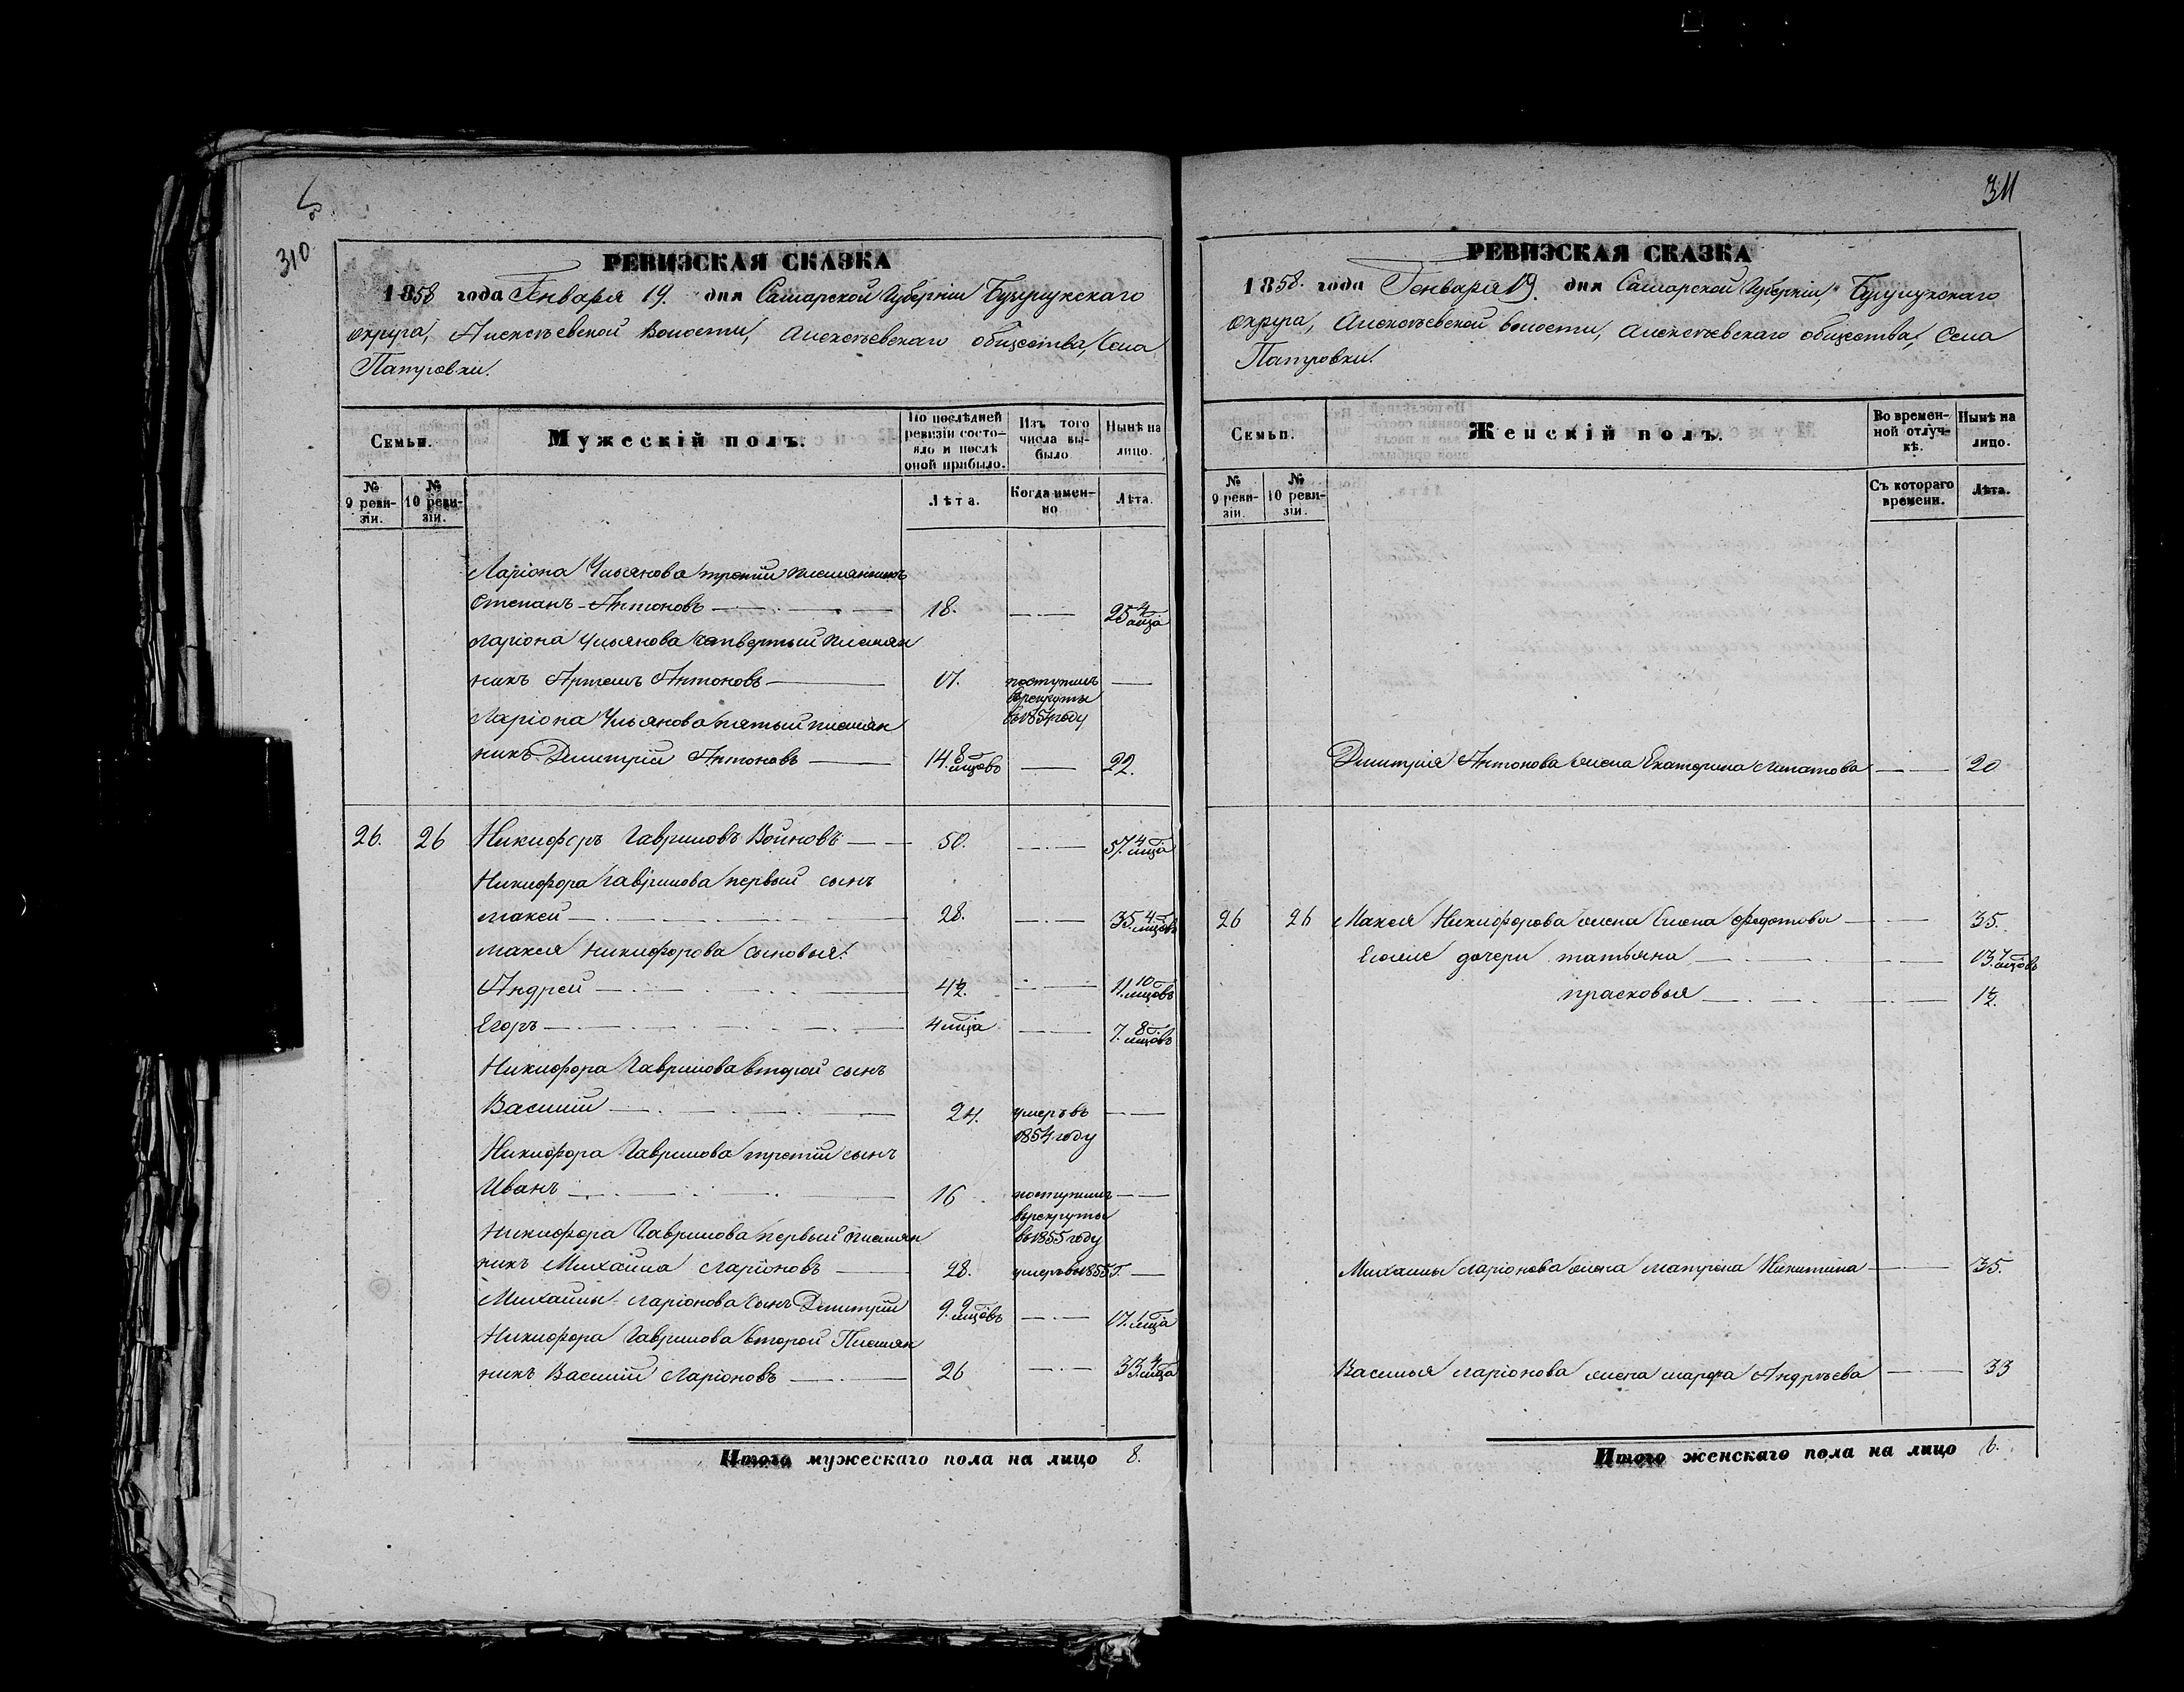 310
РЕВИЗСКАЯ СКАЗКА
1858 года Генваря 19. дня Самарской Губернiи Бузулукскаго
округа, Алексѣевской Волости, Алексѣевскаго общества, Села
Патровки.
Семьи.
Мужескiй полъ.
По послѣдней ревизiи состояло и послѣ оной прибыло.
Изъ того числа выбыло
Нынѣ на лицо.
№ 9 ревизiи.
№ 10 ревизiи.
Лѣта.
Когда именно
Лѣта.
Ларiона Ульянова третiй племянникъ
Степанъ Антоновъ 18. 25 4 мца
Ларiона Ульянова четвертый племян
никъ Артемъ Антоновъ 17. поступилъ
въ рекруты
Ларiона Ульянова пятый племян въ 1854 году
никъ Дмитрiй Антоновъ 14. 8 мцовъ 22.
26. 26 Никифоръ Гавриловъ Войновъ 50. 57. 4 мца
Никифора Гаврилова первый сынъ
Макей 28. 35. 4 мцовъ
Макея Никифорова сыновья:
Андрей 4½. 11. 10 мцовъ
Егоръ 4 мца 7. 8 мцовъ
Никифора Гаврилова второй сынъ
Василiй 24. умеръ въ
1854 году
Никифора Гаврилова третiй сынъ
Иванъ 16 поступилъ
въ рекруты
Никифора Гаврилова первый племян въ 1855 году
никъ Михайла Ларiоновъ 28. умеръ въ 1855 г.
Михайлы Ларiонова сынъ Дмитрiй 9. 9 мцовъ 17. 1 мца
Никифора Гаврилова второй Племян
никъ Василiй Ларiоновъ 26 33. 4 мца
Итого мужескаго пола на лицо 8.
311
РЕВИЗСКАЯ СКАЗКА
1858. года Генваря 19. дня Самарской Губернiи Бузулукскаго
округа, Алексѣевской волости, Алексѣевскаго общества, Села
Патровки.
Семьи.
Женскiй полъ.
Во временной отлучкѣ.
Нынѣ на лицо.
№ 9 ревизiи.
№ 10 ревизiи.
Съ котораго времени.
Лѣта.
Дмитрiя Антонова жена Екатерина Ипатова 20
26 26 Макея Никифорова жена Елена Федотова 35.
Егоже дочери татьяна 13. 7 мцовъ
прасковья 1½.
Михайлы Ларiонова жена Матрена Никитина 35.
Василья Ларiонова жена марфа Андрѣева 33
Итого женскаго пола на лицо 6.